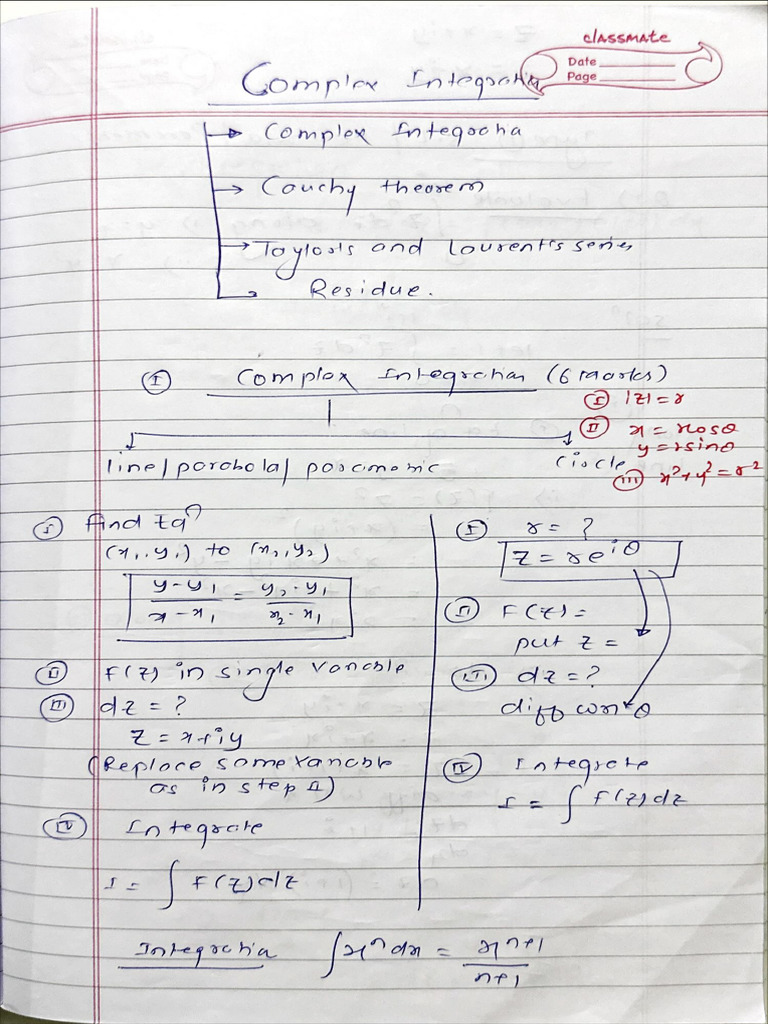 classmate
Date
Page
Complex Integration
→ Complex Integration
→ Cauchy theorem
→ Taylor's and Laurent's series
→ Residue.
Ⓘ Complex Integration (6 marks)
Ⓘ |z| = r
Ⓘⓘ x = rcosθ
y = rsinθ
line/parabola/
Circle
ⓘⓘⓘ x² + y² = r²
Ⓘ find Eqⁿ
(x₁, y₁) to (x₂, y₂)
y - y₁ / x - x₁ = y₂ - y₁ / x₂ - x₁
Ⓘⓘ F(z) in single variable
ⓘⓘⓘ dz = ?
z = x + iy
(Replace same variable
as in step 1)
ⓘⓥ Integrate
I = ∫ F(z) dz
Ⓘ r = ?
z = re^{iθ}
Ⓘⓘ F(z) =
put z =
ⓘⓘⓘ dz = ?
diff w.r.t θ
ⓘⓥ Integrate
I = ∫ F(z) dz
Integration ∫xⁿ dx = xⁿ⁺¹ / n+1